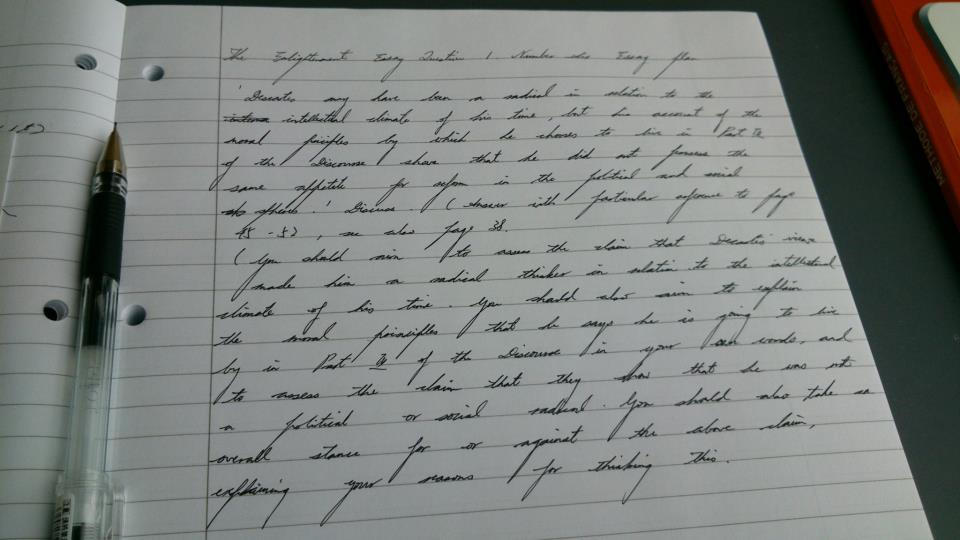 The Enlightenment Essay Question 1. Number Essay plan
'Descartes may have been a radical in relation to the
intellectual climate of his time, but his account of the
moral principles by which he chooses to live in Part
of the Discourse shows that he did not possess the
same appetite for reform in the political and social
spheres.' Discuss. (Answer with particular reference to page
45-53, see also page 38.
(You should aim to assess the claim that Descartes' views
made him a radical thinker in relation to the intellectual
climate of his time. You should also aim to explain
the moral principles that he says he is going to live
by in Part of the Discourse in your own words, and
to assess the claim that they show that he was not
a political or social radical. You should also take an
overall stance for or against the above claim,
explaining your reasons for thinking this.